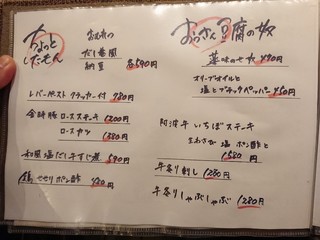 ちょっと
したもん
だし巻風
納豆
各590円
レバーペースト クラッカー付 780円
金時豚 ロースステーキ 1200円
ロースカツ 1380円
和風 塩だし牛すじ煮 590円
鶏 せせりポン酢 420円
おぼろ豆腐の奴
薬味の七奴 490円
オリーブオイルと
塩とブラックペッパー 450円
阿波牛 いちぼステーキ
生わさび 塩 ポン酢と
1580円
牛炙り刺し 1280円
牛炙りしゃぶしゃぶ 1280円